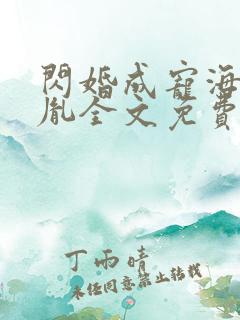 閃婚成寵海
胤全文免費
丁雨晴
未經同意禁止轉載